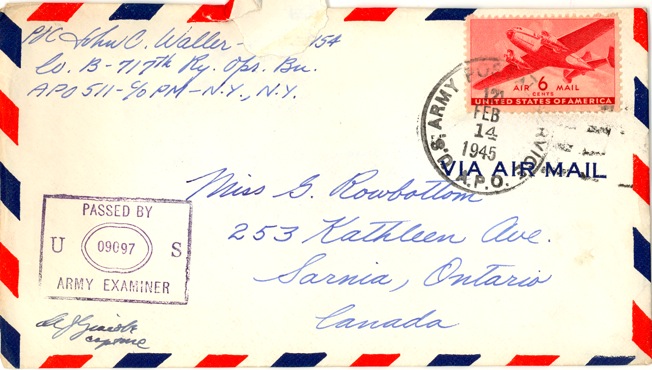 Pvt John C. Waller - 154
Co. B - 717th Ry. Ops. Bn.
APO 511 - c/o PM - N.Y., N.Y.
AIR 6 MAIL
CENTS
UNITED STATES OF AMERICA
U.S. ARMY POSTAL SERVICE
FEB
14
1945
A.P.O.
VIA AIR MAIL
Miss G. Rowbottom
253 Kathleen Ave.
Sarnia, Ontario
Canada
PASSED BY
U 09097 S
ARMY EXAMINER